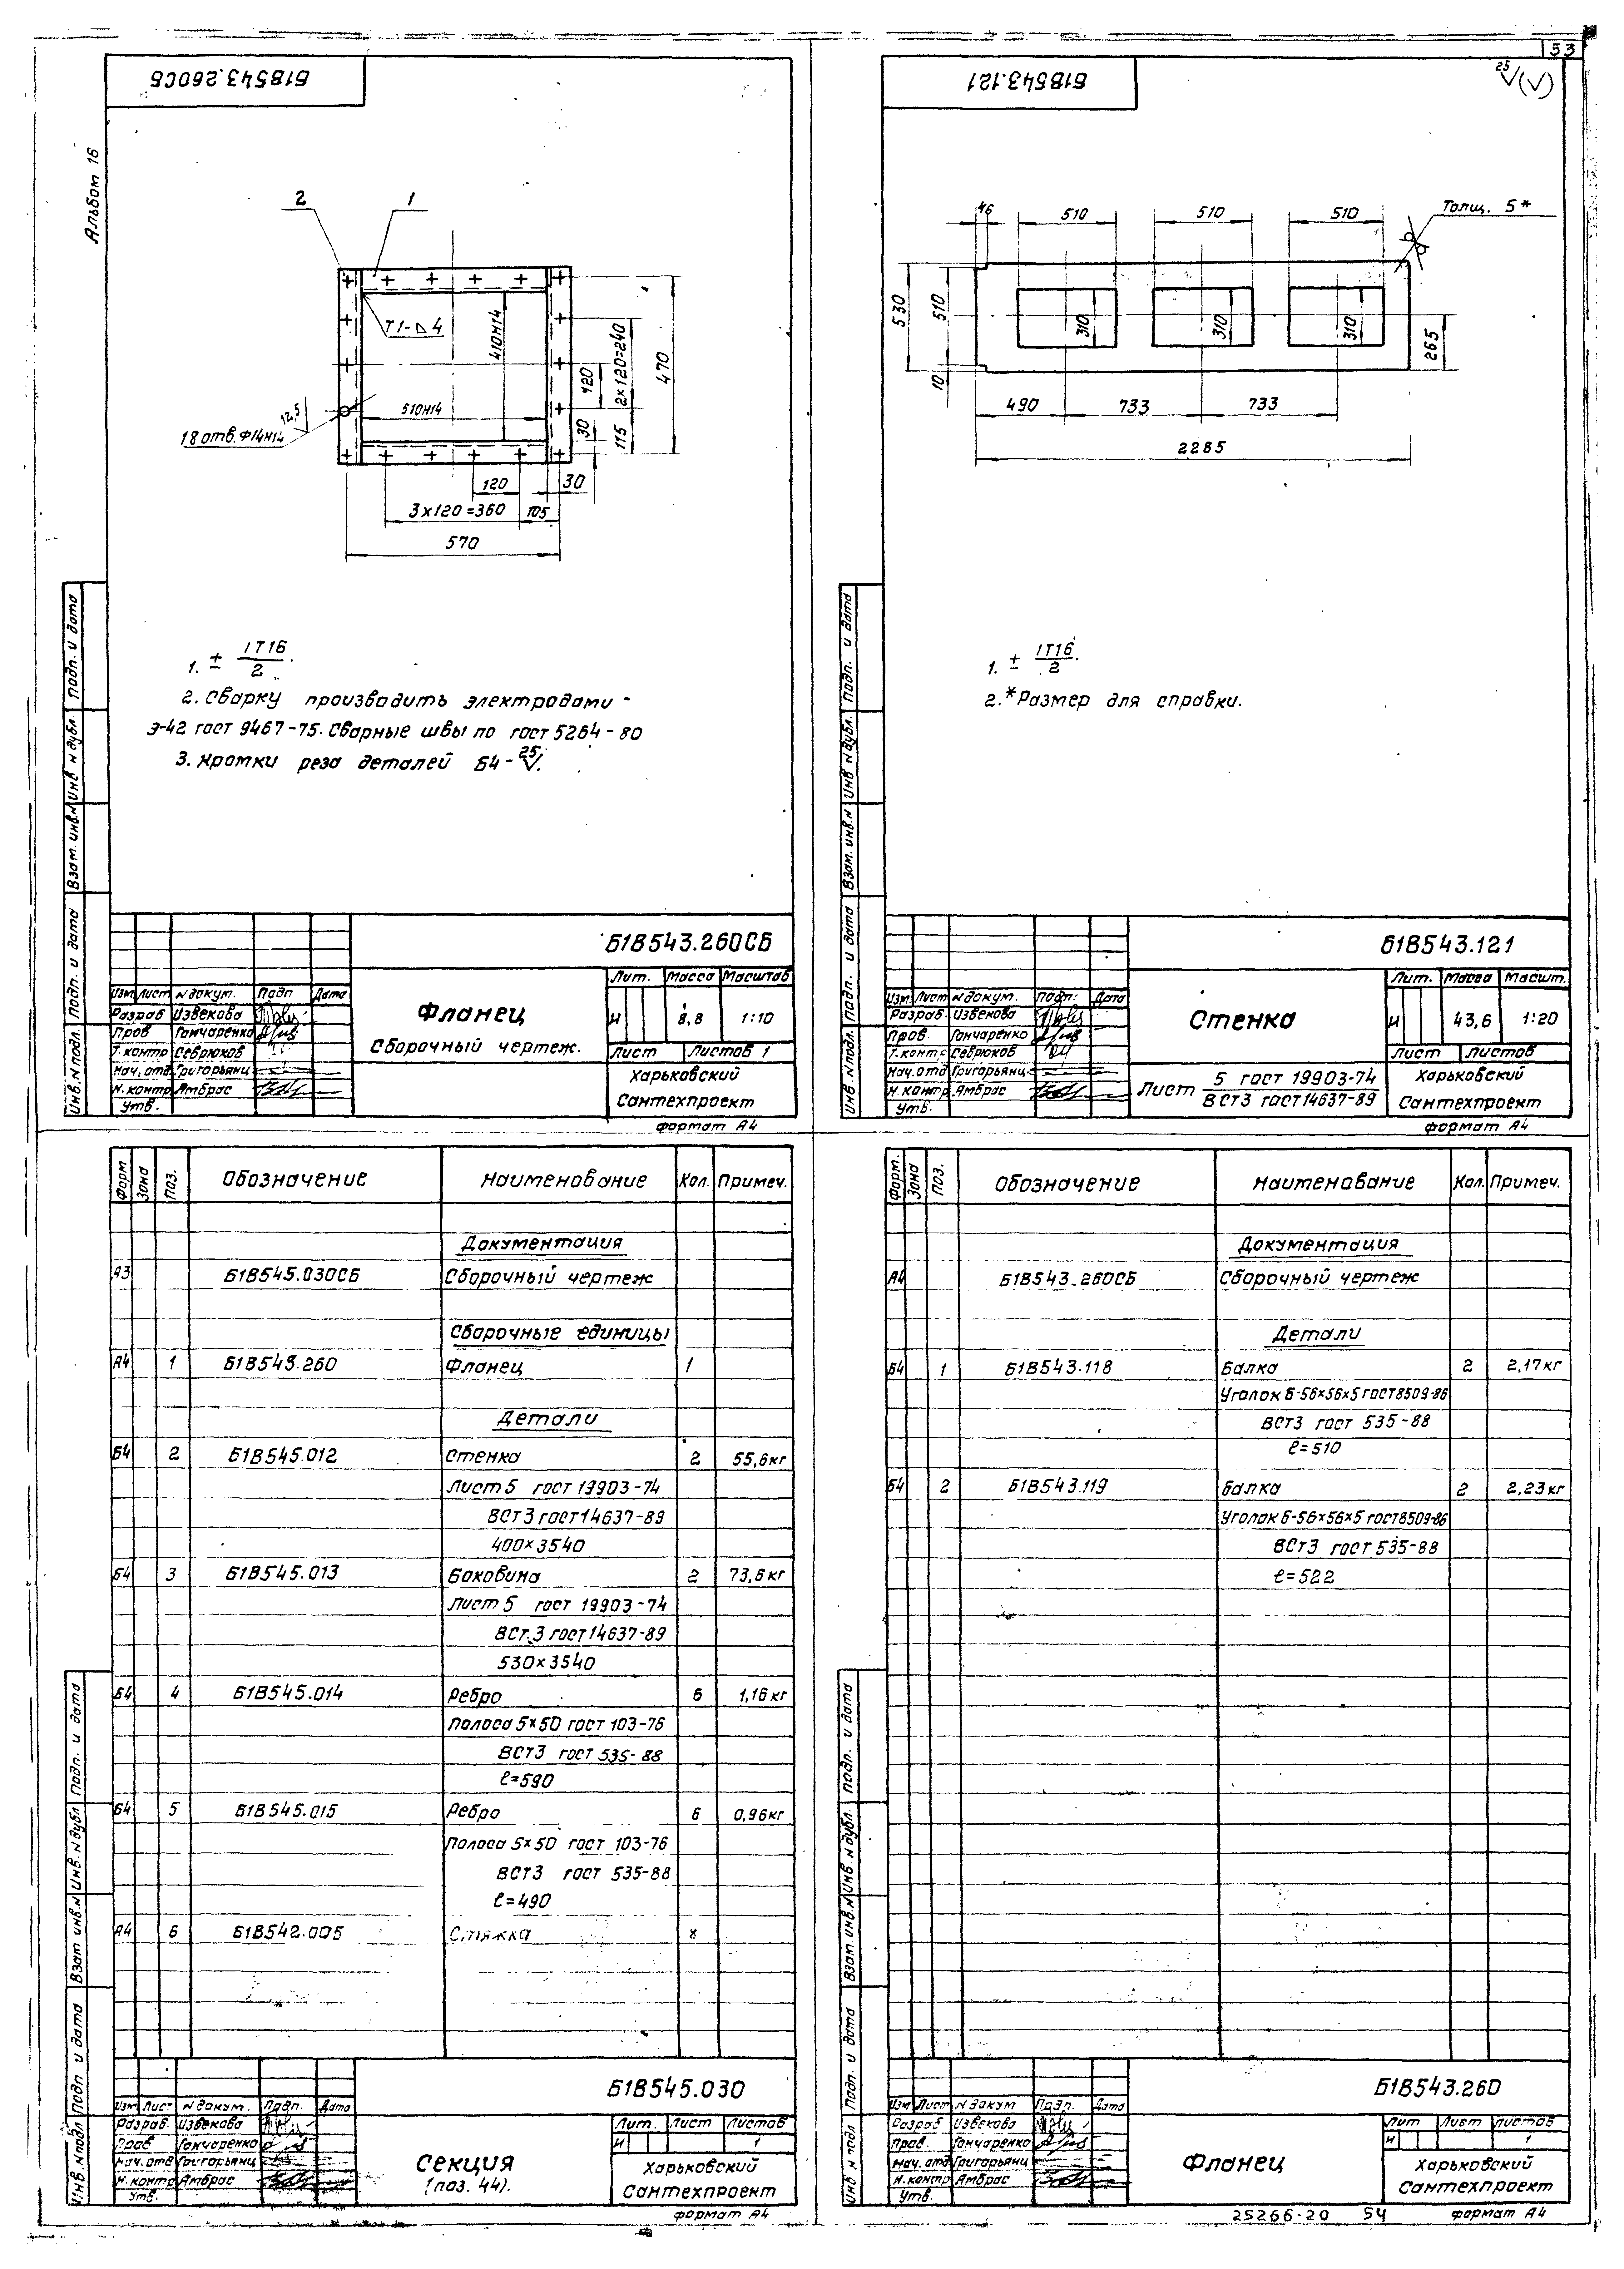 53
Альбом 16
Б1В543.260СБ
2
1
Т1-⊿4
410Н14
510Н14
12,5
18 отв.Ф14Н14
120
2×120=240
470
30
115
120
30
3×120=360
105
570
1. ± IT16/2.
2. Сварку производить электродами -
Э-42 гост 9467-75. Сварные швы по гост 5264-80
3. Кромки реза деталей Б4 - 25√.
Б1В543.260СБ
Лит. Масса Масштаб
Изм Лист № докум. Подп Дата
Разраб Извекова
Пров Гончаренко
Т.контр Севрюков
Нач.отд Григорьянц
Н.контр Амбрас
Утв.
Фланец
Сборочный чертеж.
И 8,8 1:10
Лист Листов 1
Харьковский
Сантехпроект
формат А4
Инв.№ подл. Подп. и дата Взам.инв.№ Инв № дубл. Подп. и дата
Б1В543.121
25√(√)
46
510
510
510
Толщ. 5*
530
510
10
310
310
310
265
490
733
733
2285
1. ± IT16/2.
2.*Размер для справки.
Б1В543.121
Лит. Масса Масшт.
Изм. Лист № докум. Подп. Дата
Разраб. Извекова
Пров. Гончаренко
Т.контр Севрюков
Нач.отд Григорьянц
Н.контр Амбрас
Утв.
Стенка
И 43,6 1:20
Лист Листов
Лист 5 гост 19903-74
ВСт3 гост 14637-89
Харьковский
Сантехпроект
формат А4
Инв.№ подл. Подп. и дата Взам.инв.№ Инв № дубл. Подп. и дата
Форм Зона Поз. Обозначение Наименование Кол. Примеч.
Документация
А3 Б1В545.030СБ Сборочный чертеж
Сборочные единицы
А4 1 Б1В543.260 Фланец 1
Детали
Б4 2 Б1В545.012 Стенка 2 55,6кг
Лист 5 гост 19903-74
ВСт3 гост 14637-89
400×3540
Б4 3 Б1В545.013 Боковина 2 73,6кг
Лист 5 гост 19903-74
ВСт.3 гост 14637-89
530×3540
Б4 4 Б1В545.014 Ребро 6 1,16кг
Полоса 5×50 гост 103-76
ВСт3 гост 535-88
ℓ=590
Б4 5 Б1В545.015 Ребро 6 0,96кг
Полоса 5×50 гост 103-76
ВСт3 гост 535-88
ℓ=490
А4 6 Б1В542.005 Стяжка 8
Б1В545.030
Изм Лист № докум. Подп. Дата
Разраб. Извекова
Пров Гончаренко
Нач.отд Григорьянц
Н.контр Амбрас
Утв.
Секция
(поз. 44).
Лит. Лист Листов
И 1
Харьковский
Сантехпроект
формат А4
Инв.№ подл Подп и дата Взам инв.№ Инв.№ дубл Подп. и дата
Форм. Зона Поз. Обозначение Наименование Кол. Примеч.
Документация
А4 Б1В543.260СБ Сборочный чертеж
Детали
Б4 1 Б1В543.118 Балка 2 2,17кг
Уголок Б-56×56×5 гост8509-86
ВСт3 гост 535-88
ℓ=510
Б4 2 Б1В543.119 Балка 2 2,23кг
Уголок Б-56×56×5 гост8509-86
ВСт3 гост 535-88
ℓ=522
Б1В543.260
Изм Лист № докум Подп. Дата
Разраб Извекова
Пров. Гончаренко
Нач.отд Григорьянц
Н.контр Амбрас
Утв.
Фланец
Лит Лист Листов
И 1
Харьковский
Сантехпроект
25266-20 54 формат А4
Инв № подл Подп. и дата Взам.инв.№ Инв.№ дубл. Подп. и дата